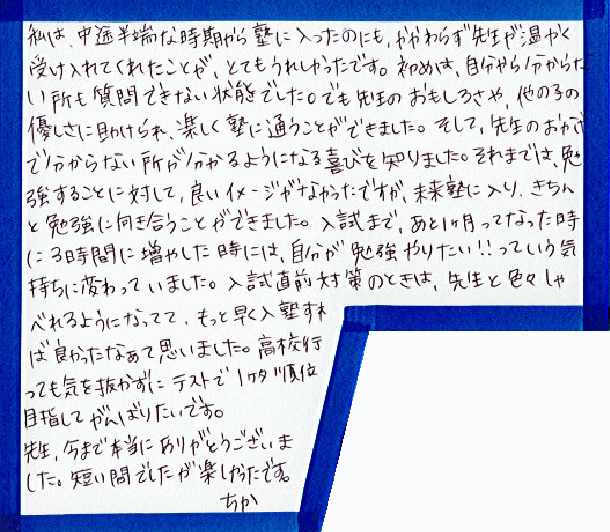 私は、中途半端な時期から塾に入ったのにも、かかわらず先生が温かく
受け入れてくれたことが、とてもうれしかったです。初めは、自分から分からな
い所も質問できない状態でした。でも先生のおもしろさや、他の子の
優しさに助けられ、楽しく塾に通うことができました。そして、先生のおかげ
で分からない所が分かるようになる喜びを知りました。それまでは、勉
強することに対して、良いイメージがなかったですが、未来塾に入り、きちん
と勉強に向き合うことができました。入試まで、あと1ヶ月ってなった時
に3時間に増やした時には、自分が勉強やりたい!!っていう気
持ちに変わっていました。入試直前対策のときは、先生と色々しゃ
べれるようになってて、もっと早く入塾すれ
ば良かったなぁて思いました。高校行
っても気を抜かずにテストで1ケタ順位
目指してがんばりたいです。
先生、今まで本当にありがとうございま
した。短い間でしたが楽しかったです。
ちか